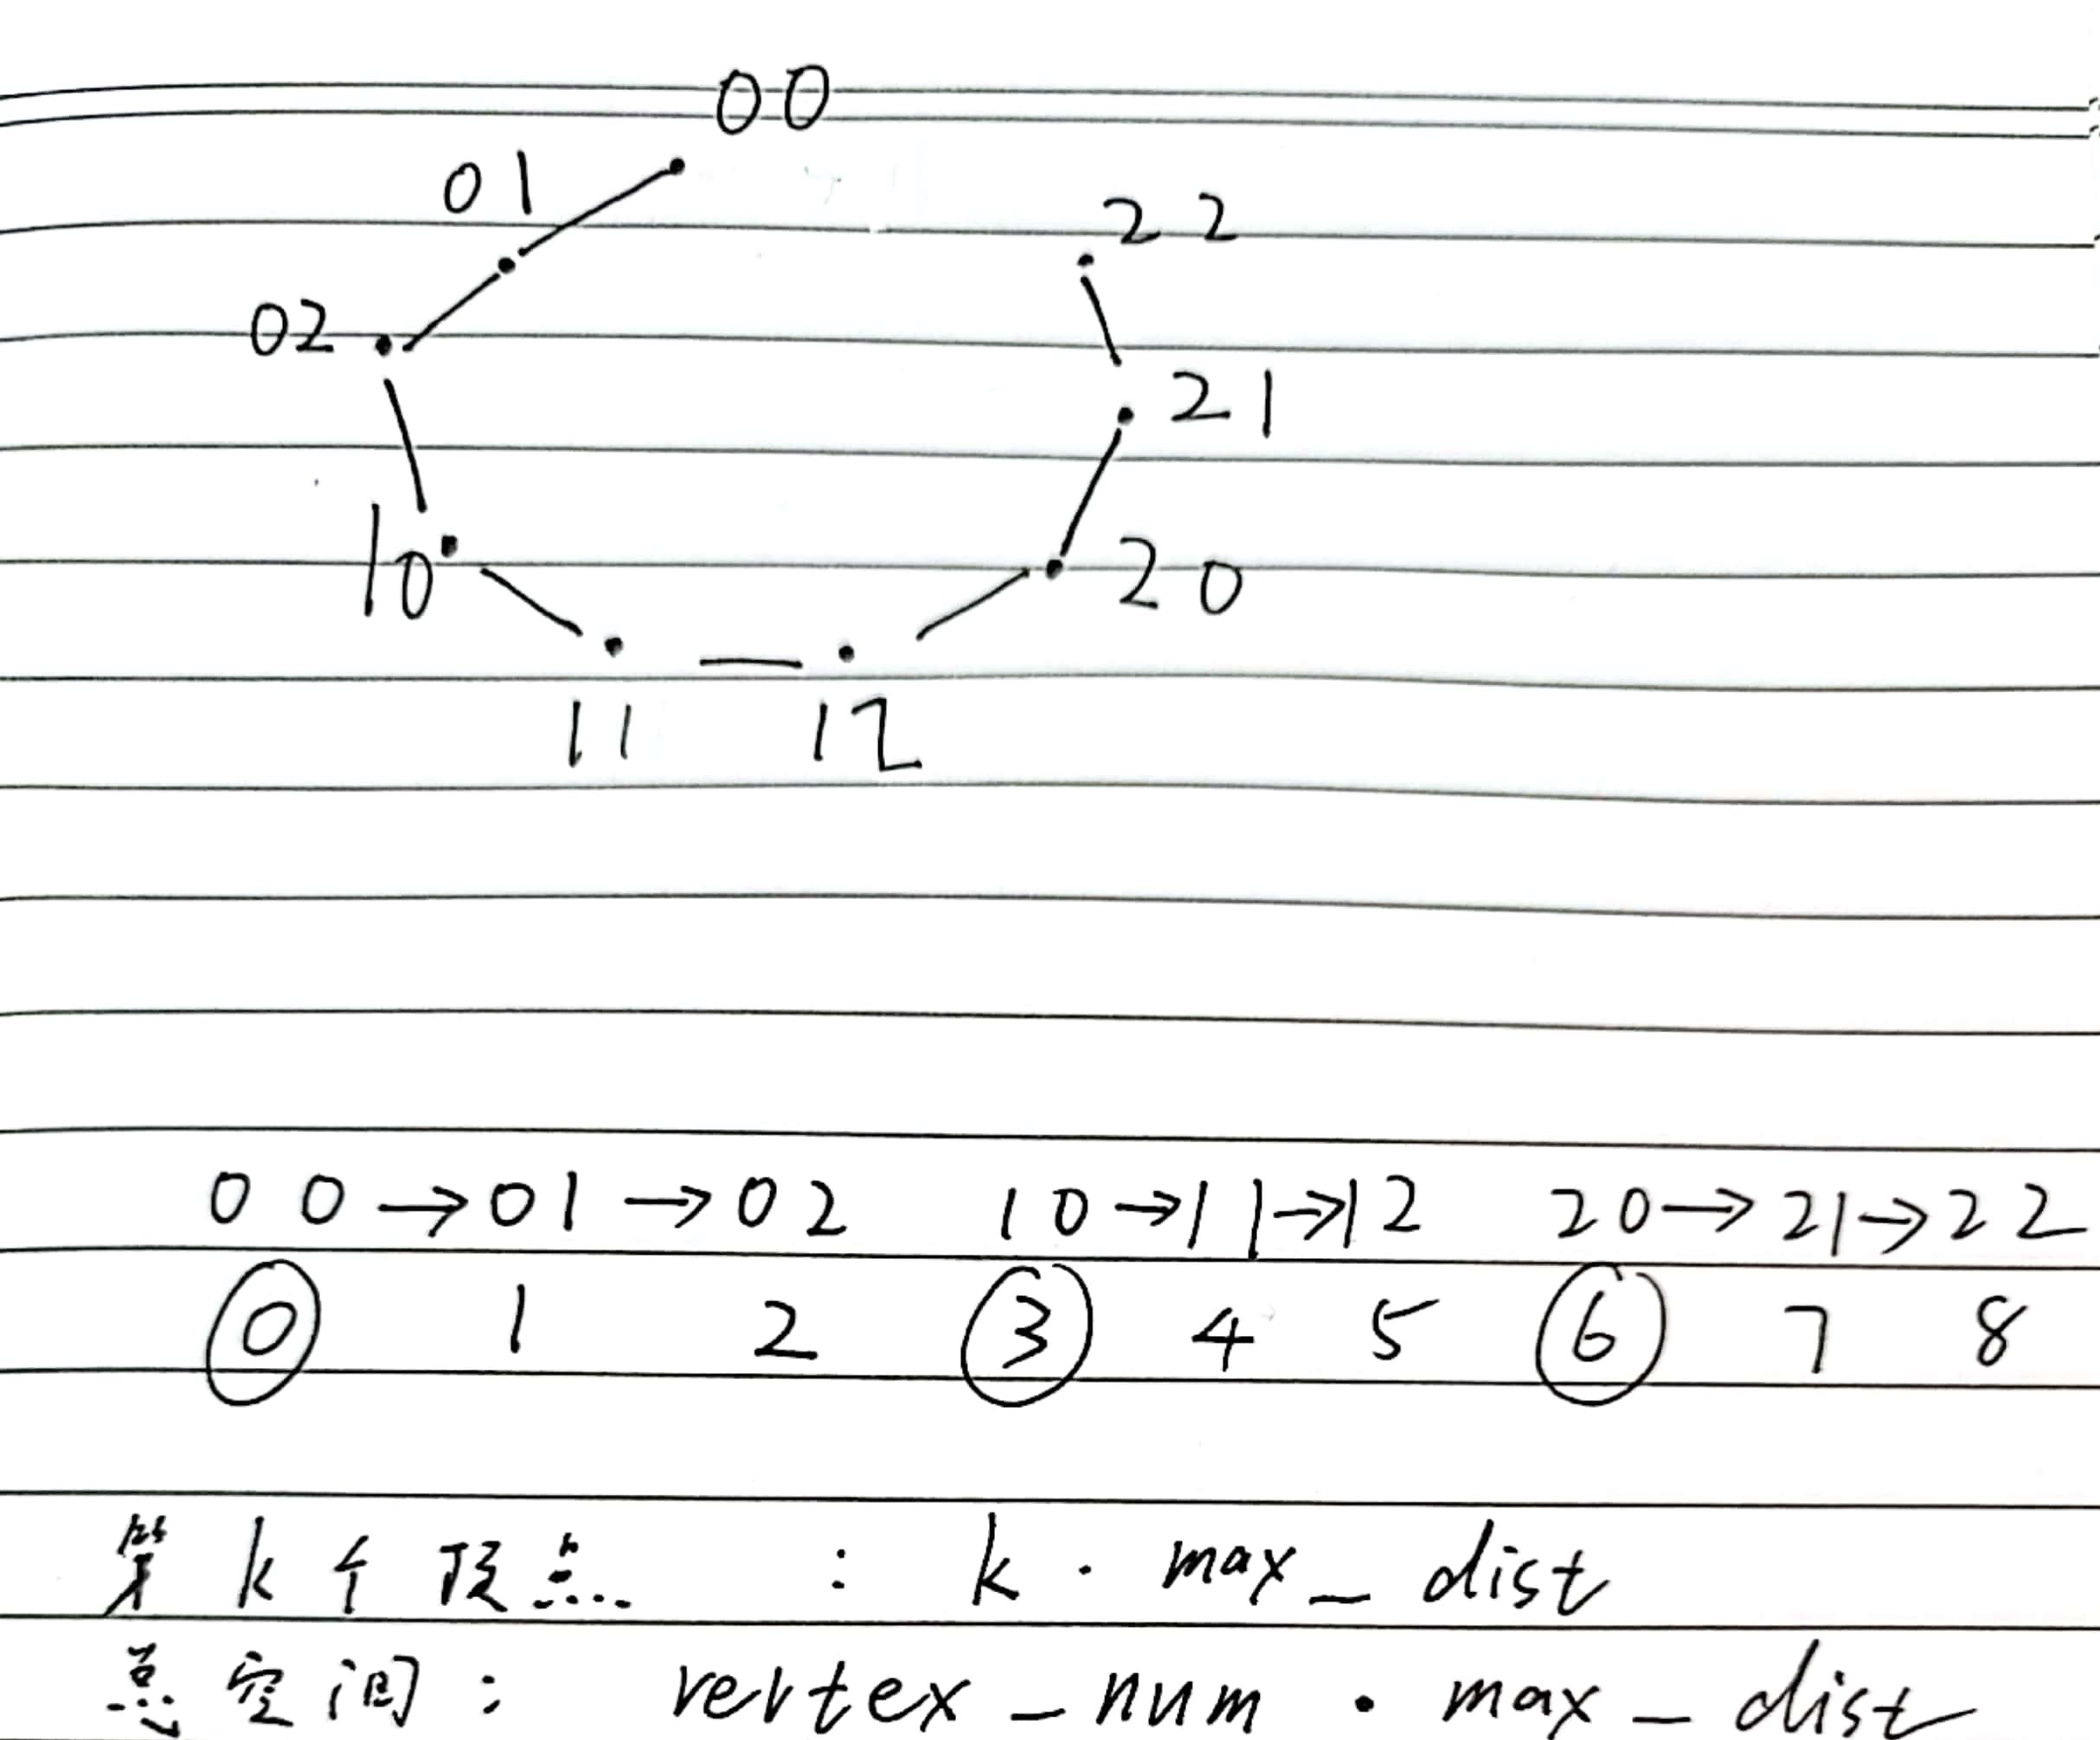 00
01
22
02
21
10
20
11 12
00→01→02 10→11→12 20→21→22
0 1 2 3 4 5 6 7 8
第k个顶点 : k · max_dist
总空间: vertex_num · max_dist